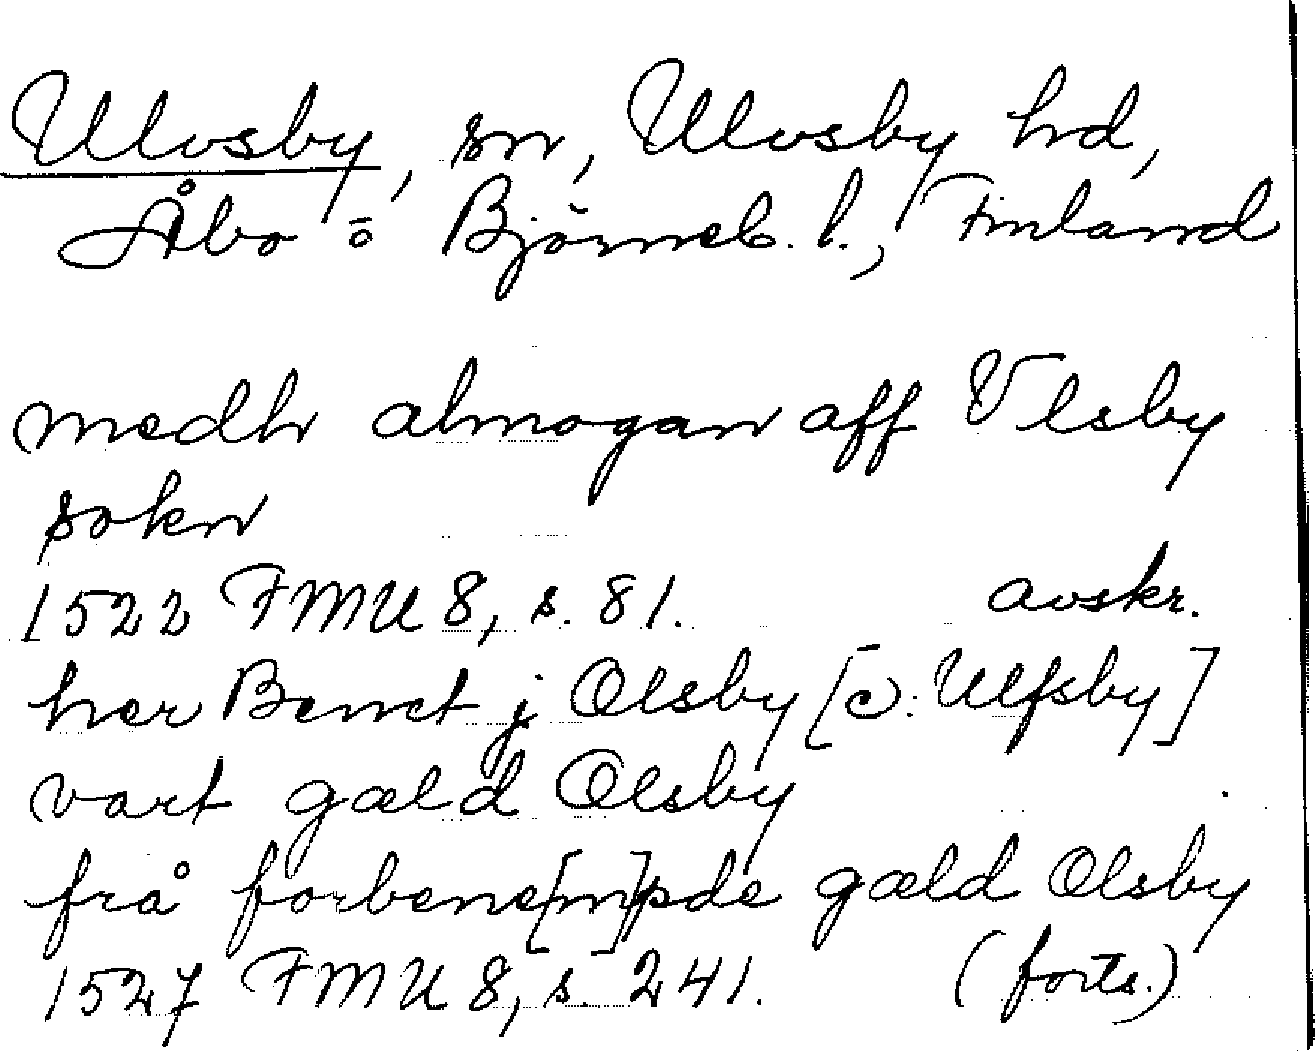 Ulvsby, sn, Ulvsby hd,
Åbo o Björneb. l., Finland
medh almogan aff Vlsby
sokn
1522 FMU 8, s. 81. avskr.
her Benct j Olsby [ɔ: Ulfsby]
vart gæld Olsby
frå forbene[m]pde gæld Olsby
1527 FMU 8, s. 241. (forts.)